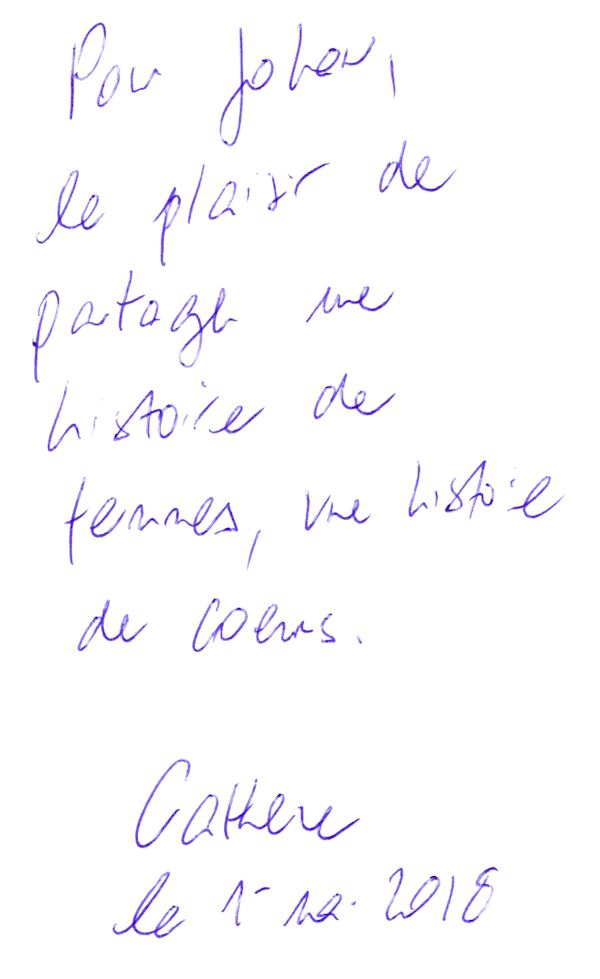 Pour Johan,
le plaisir de
partager une
histoire de
femmes, une histoire
de coeurs.
Catherine
le 1 mai 2018